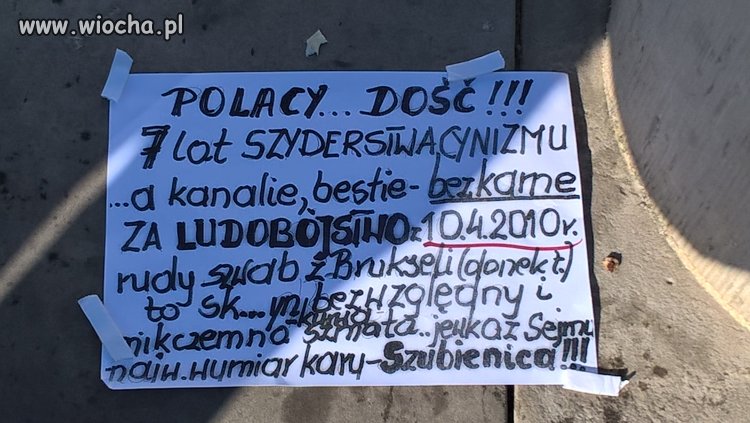 www.wiocha.pl
POLACY... DOŚĆ!!!
7 lat SZYDERSTWA CYNIZMU
...a kanalie, bestie- bezkarne
ZA LUDOBÓJSTWO z 10.4.2010r.
rudy szwab z Brukseli (donek t.)
to sk...yn, bezwzględny i
nikczemna szmata.. Sejmu
najw. wymiar kary-Szubienica!!!